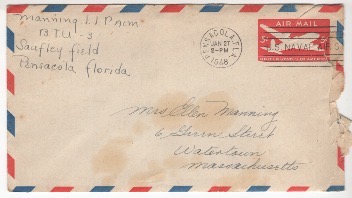 Manning J J P NCM
B T U - 3
Saufley field
Pensacola Florida.
PENSACOLA, FLA.
JAN 27
3-PM
1948
AIR MAIL
5¢
U.S. NAVAL
UNITED STATES OF AMERICA
Mrs Ellen Manning
6 Green Street
Watertown
Massachusetts